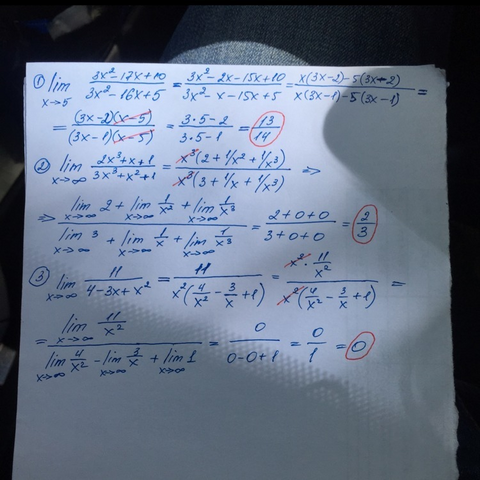 ① lim x→5 (3x²-17x+10)/(3x²-16x+5) = (3x²-2x-15x+10)/(3x²-x-15x+5) = (x(3x-2)-5(3x-2))/(x(3x-1)-5(3x-1)) =
= ((3x-2)(x-5))/((3x-1)(x-5)) = (3·5-2)/(3·5-1) = 13/14
② lim x→∞ (2x³+x+1)/(3x³+x²+1) = (x³(2+1/x²+1/x³))/(x³(3+1/x+1/x³)) ⇒
⇒ (lim x→∞ 2 + lim x→∞ 1/x² + lim x→∞ 1/x³)/(lim x→∞ 3 + lim x→∞ 1/x + lim x→∞ 1/x³) = (2+0+0)/(3+0+0) = 2/3
③ lim x→∞ 11/(4-3x+x²) = 11/(x²(4/x²-3/x+1)) = (x²·11/x²)/(x²(4/x²-3/x+1)) =
= (lim x→∞ 11/x²)/(lim x→∞ 4/x² - lim x→∞ 3/x + lim x→∞ 1) = 0/(0-0+1) = 0/1 = 0